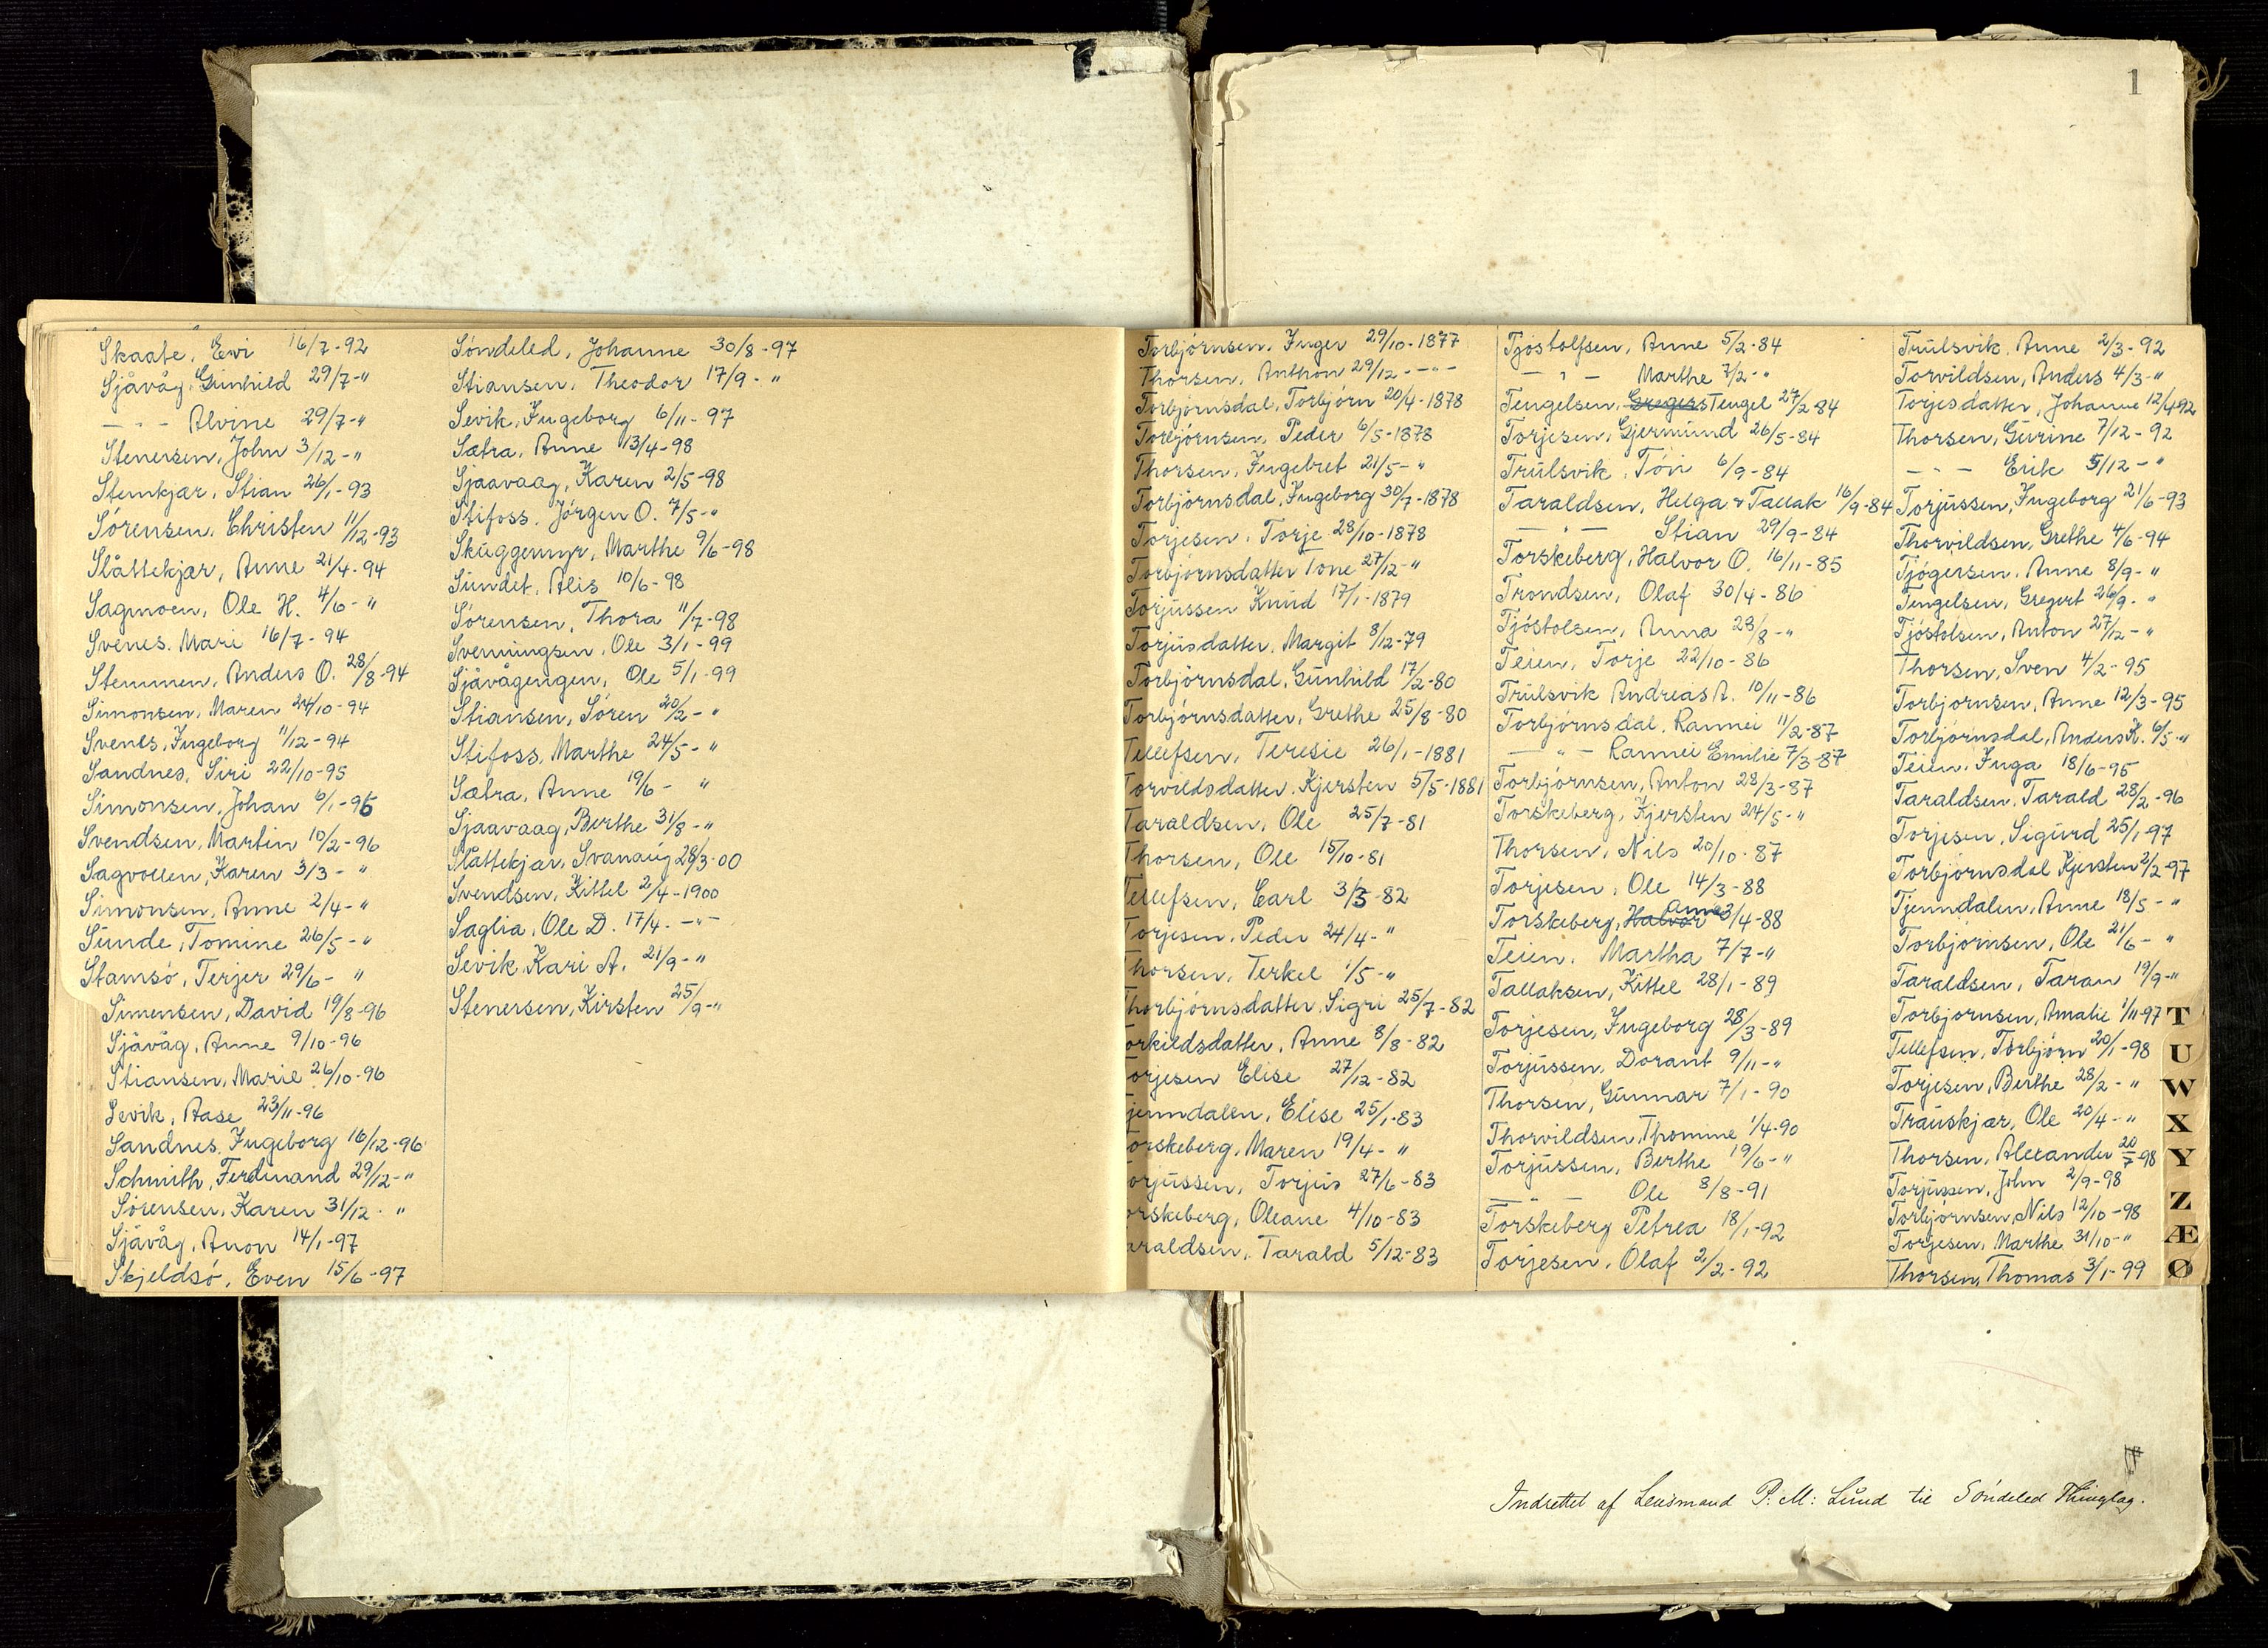 1
Skaate, Evi 16/7-92
Sjåvåg, Gunhild 29/7-"
— " — Alvine 29/7-"
Stenersen, John 3/12-"
Stemkjær, Stian 26/1-93
Sörensen, Christen 11/12-93
Slåttekjær, Anne 21/4-94
Sagmoen, Ole H. 4/6-"
Svenes, Mari 16/7-94
Stemmen, Anders O. 28/8-94
Simonsen, Maren 24/10-94
Svenes, Ingeborg 11/12-94
Sandnes, Siri 22/10-95
Simonsen, Johan 6/1-96
Svendsen, Martin 10/2-96
Sagvollen, Karen 3/3-"
Simonsen, Anne 2/4-"
Sunde, Tomine 26/5-"
Stamsö, Terjer 29/6-"
Simensen, David 19/8-96
Sjåvåg, Anne 9/10-96
Stiansen, Marie 26/10-96
Sevik, Aase 23/11-96
Sandnes, Ingeborg 16/12-96
Schmith, Ferdinand 29/12-"
Sörensen, Karen 31/12-"
Sjåvåg, Anon 14/1-97
Skjeldsö, Even 15/6-97
Söndeled, Johanne 30/8-97
Stiansen, Theodor 17/9-"
Sevik, Ingeborg 6/11-97
Sætra, Anne 13/4-98
Sjaavaag, Karen 2/5-98
Stifoss, Jörgen O. 7/5-"
Skuggemyr, Marthe 9/6-98
Sundet, Alis 10/6-98
Sörensen, Thora 11/7-98
Svenningsen, Ole 3/1-99
Sjåvågengen, Ole 5/1-99
Stiansen, Sören 20/2-"
Stifoss, Marthe 24/5-"
Sætra, Anne 19/6-"
Sjaavaag, Berthe 31/8-"
Slåttekjær, Svanaug 28/3-00
Svendsen, Kittel 2/4-1900
Saglia, Ole D. 17/4. —"—
Sevik, Kari A. 21/9-"
Stenersen, Kirsten 25/9-"
Torbjörnsen, Inger 29/10-1877
Thorsen, Anthon 29/12- —"—
Torbjörnsdal, Torbjörn 20/4-1878
Torbjörnsen, Peder 6/5-1878
Thorsen, Ingebret 21/5-"
Torbjörnsdal, Ingeborg 30/7-1878
Torjesen, Torje 28/10-1878
Torbjornsdatter Tone 27/12-"
Torjussen Knud 17/1-1879
Torjusdatter, Margit 8/12-79
Torbjörnsdal, Gunhild 17/2-80
Torbjörnsdatter, Grethe 25/8-80
Tellefsen, Teresie 26/1-1881
Torvildsdatter, Kjersten 5/5-1881
Taraldsen, Ole 25/7-81
Thorsen, Ole 15/10-81
Tellefsen, Carl 3/3-82
Torjesen, Peder 24/4-"
Thorsen, Terkel 1/5-"
Thorbjörnsdatter, Sigri 25/7-82
orkildsdatter, Anne 8/8-82
orjesen Elise 27/12-82
jenndalen, Elise 25/1-83
orskeberg, Maren 19/4-"
orjussen, Torjus 27/6-83
orskeberg, Oleane 4/10-83
araldsen, Tarald 5/12-83
Tjöstolfsen, Anne 5/2-84
— " — Marthe 7/2-"
Tengelsen, Gregers Tengel 27/2-84
Torjesen, Gjermund 26/5-84
Trulsvik, Tön 6/9-84
Taraldsen, Helga & Tallak 16/9-84
— " — Stian 29/9-84
Torskeberg, Halvor O. 16/11-85
Trondsen, Olaf 30/4-86
Tjöstolsen, Anna 23/8-"
Teien, Torje 22/10-86
Trulsvik Andreas A. 10/11-86
Torbjörnsdal, Rannei 11/2-87
— " — Rannei Emilie 7/3-87
Torbjörnsen, Anton 28/3-87
Torskeberg, Kjersten 24/5-"
Thorsen, Nils 20/10-87
Torjesen, Ole 14/3-88
Torskeberg, Halvor Anne 3/4-88
Teien, Martha 7/7-"
Tallaksen, Kittel 28/1-89
Torjesen, Ingeborg 28/3-89
Torjussen, Dorant 9/11-"
Thorsen, Gunnar 7/1-90
Thorvildsen, Thomine 1/4-90
Torjussen, Berthe 19/6-"
— " — Ole 8/8-91
Torskeberg Petrea 18/1-92
Torjesen, Olaf 2/2-92
Trulsvik, Anne 2/3-92
Torvildsen, Anders 4/3-"
Torjesdatter, Johanne 12/4-92
Thorsen, Gurine 7/12-92
— " — Erik 5/12-"
Torjussen, Ingeborg 21/6-93
Thorvildsen, Grethe 4/6-94
Tjögersen, Anne 8/9-"
Tengelsen, Gregert 26/9-"
Tjöstolsen, Anton 27/12-"
Thorsen, Sven 4/2-95
Torbjornsen, Anne 12/3-95
Torbjörnsdal, Anders K. 6/5-"
Teien, Inga 18/6-95
Taraldsen, Tarald 28/2-96
Torjesen, Sigurd 25/1-97
Torbjørnsdal Kjersten 2/2-97
Tjenndalen, Anne 18/5-"
Torbjörnsen, Ole 21/6-"
Taraldsen, Taran 19/9-"
Torbjornsen, Amalie 1/11-97
Tellefsen, Torbjörn 20/1-98
Torjesen, Berthe 28/2-"
Trauskjær, Ole 20/4-"
Thorsen, Alexander 20/7-98
Torjussen, John 2/9-98
Torbjörnsen, Nils 12/10-98
Torjesen, Marthe 31/10-"
Thorsen, Thomas 3/1-99
T
U
W
X
Y
Z
Æ
Ø
Indrettet af Lensmand P. M: Lund til Söndeled Thinglag.